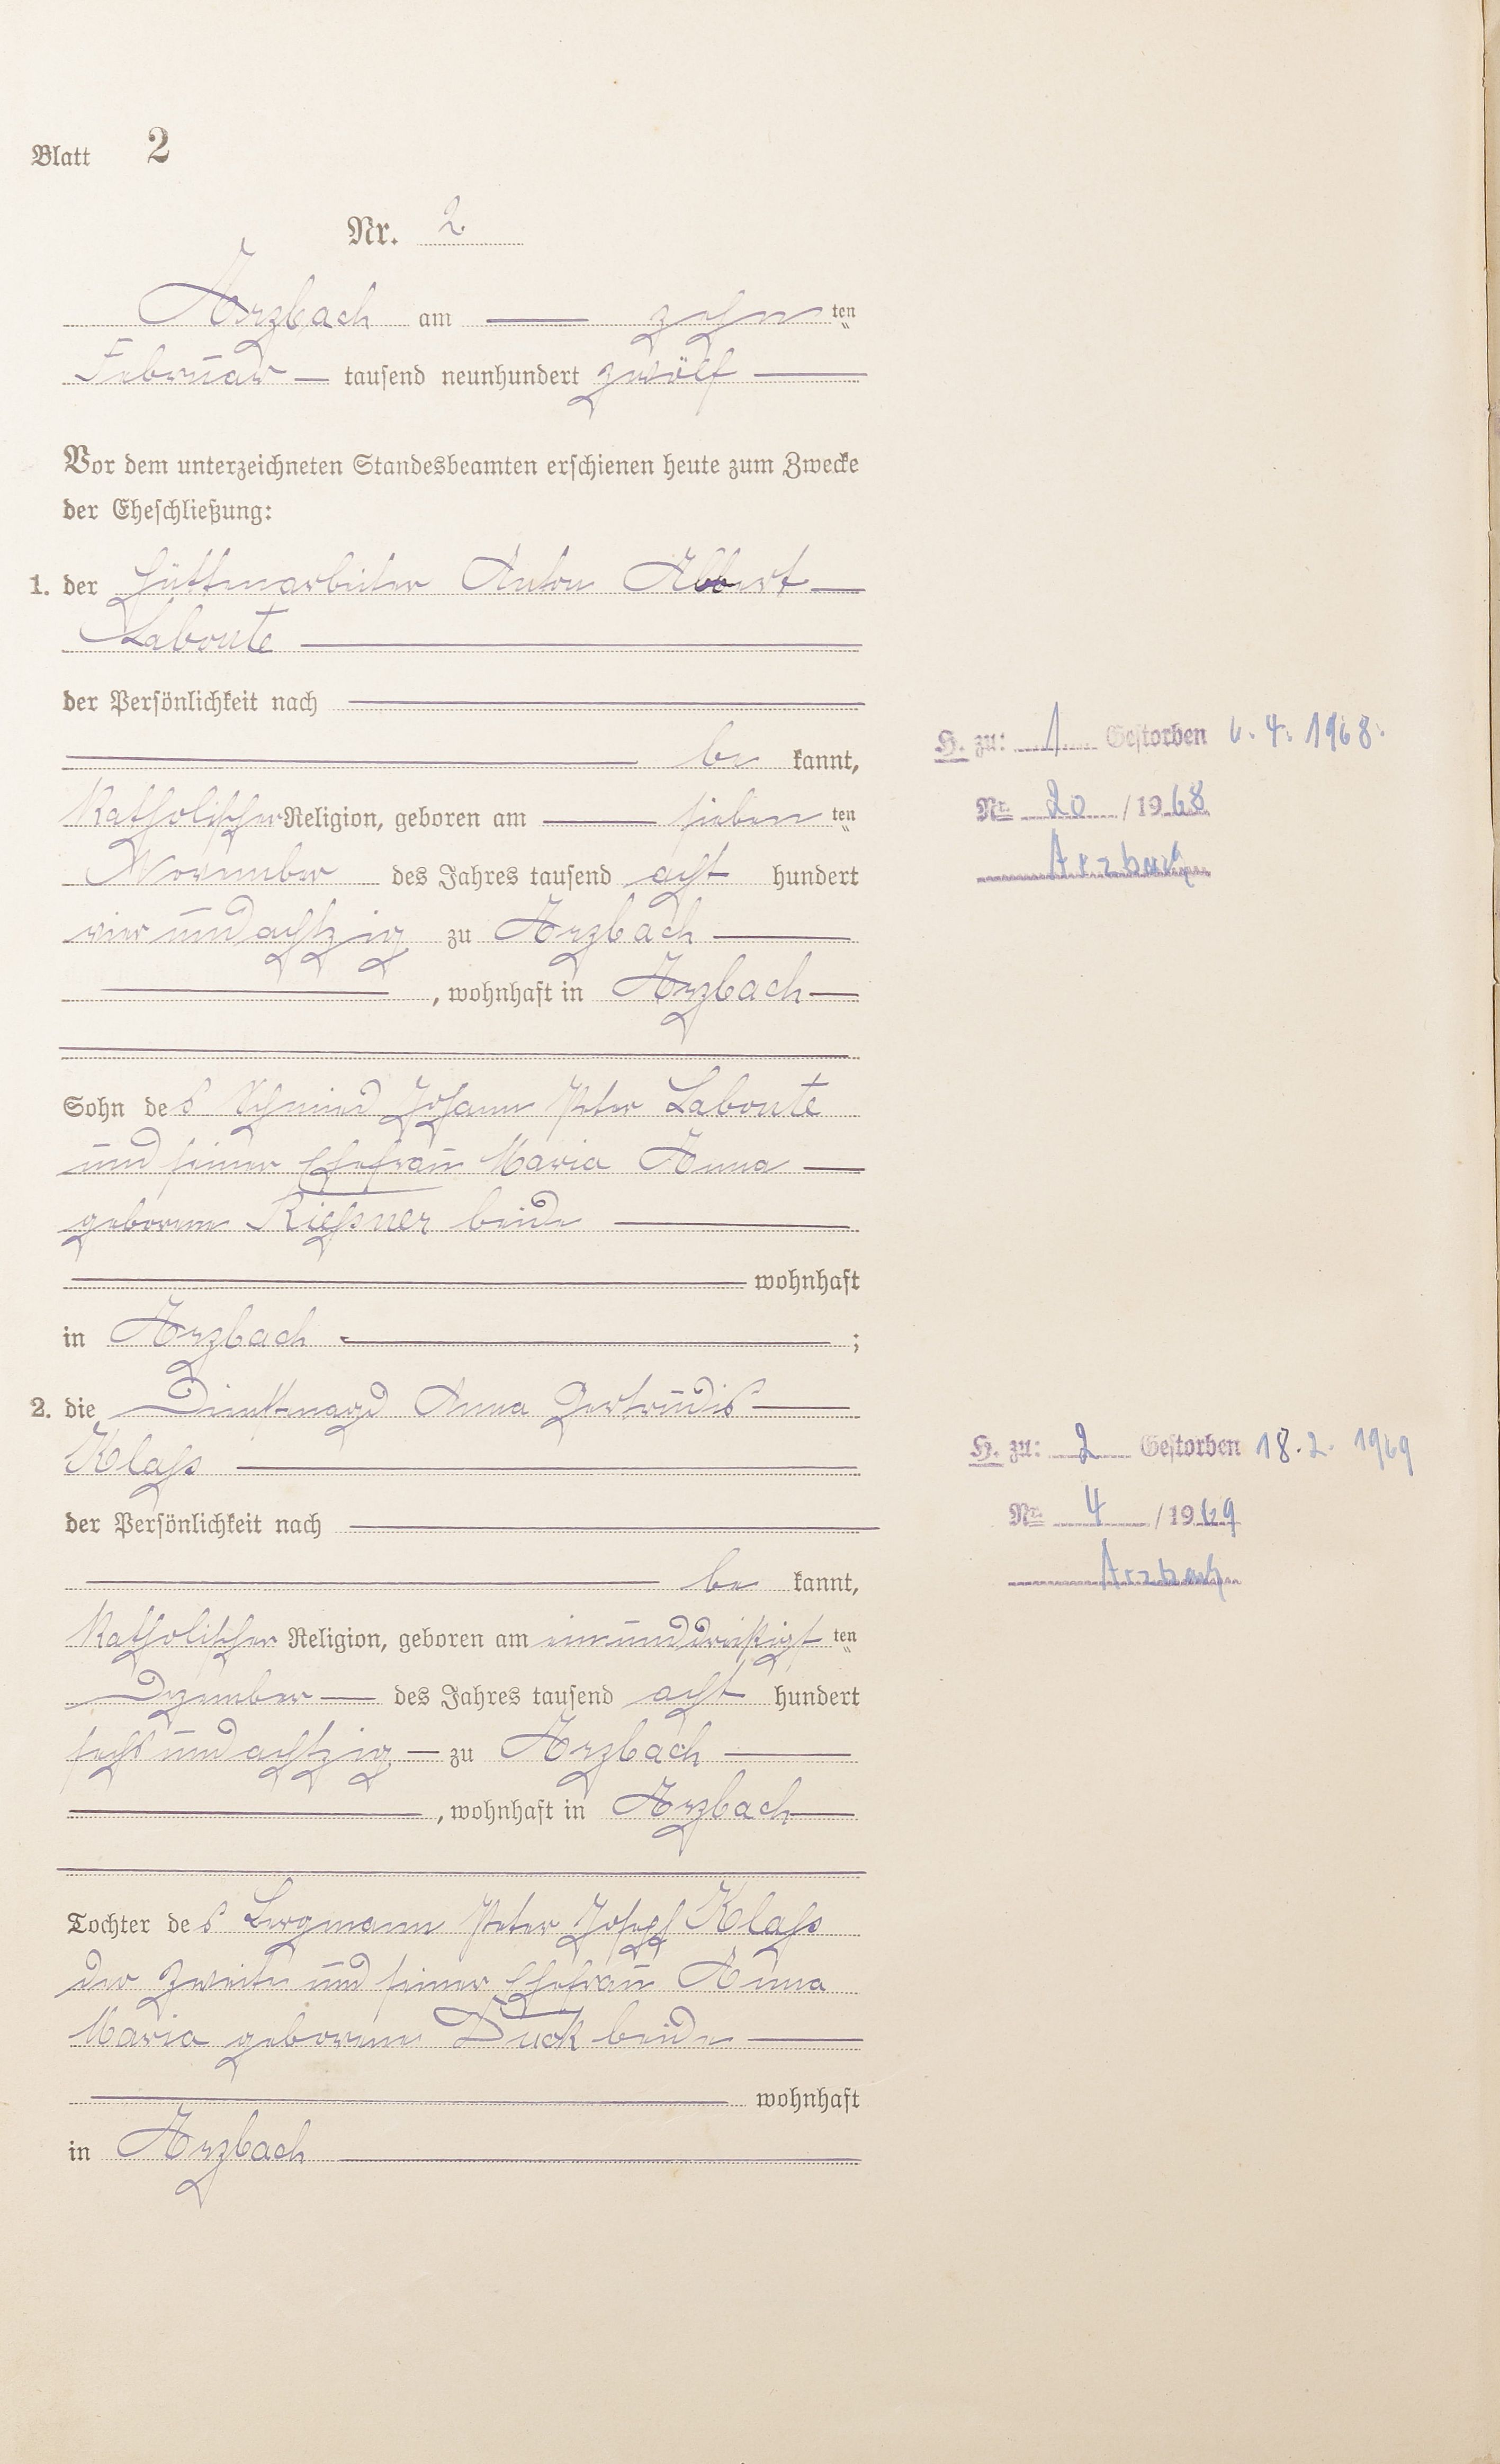 Blatt 2
Nr. 2.
Arzbach am zehn ten
Februar tausend neunhundert zwölf
Vor dem unterzeichneten Standesbeamten erschienen heute zum Zwecke
der Eheschließung:
1. der Hüttenarbeiter Anton Albert
Labonte
der Persönlichkeit nach
be kannt,
Katholischer Religion, geboren am sieben ten
November des Jahres tausend acht hundert
vier und achtzig zu Arzbach
, wohnhaft in Arzbach
Sohn des Schmied Johann Peter Labonte
und seiner Ehefrau Maria Anna
geborene Rießner beide
wohnhaft
in Arzbach ;
2. die Dienstmagd Anna Gertrudis
Klaß
der Persönlichkeit nach
be kannt,
Katholischer Religion, geboren am einunddreißigst ten
Dezember des Jahres tausend acht hundert
sechs und achtzig zu Arzbach
, wohnhaft in Arzbach
Tochter des Bergmann Peter Josef Klaß
der Zweite und seiner Ehefrau Anna
Maria geborene Duck beide
wohnhaft
in Arzbach
H. zu: 1 Gestorben 6.4.1968.
Nr. 20 / 1968
Arzbach
H. zu: 2 Gestorben 18.2.1969
Nr. 4 / 1969
Arzbach